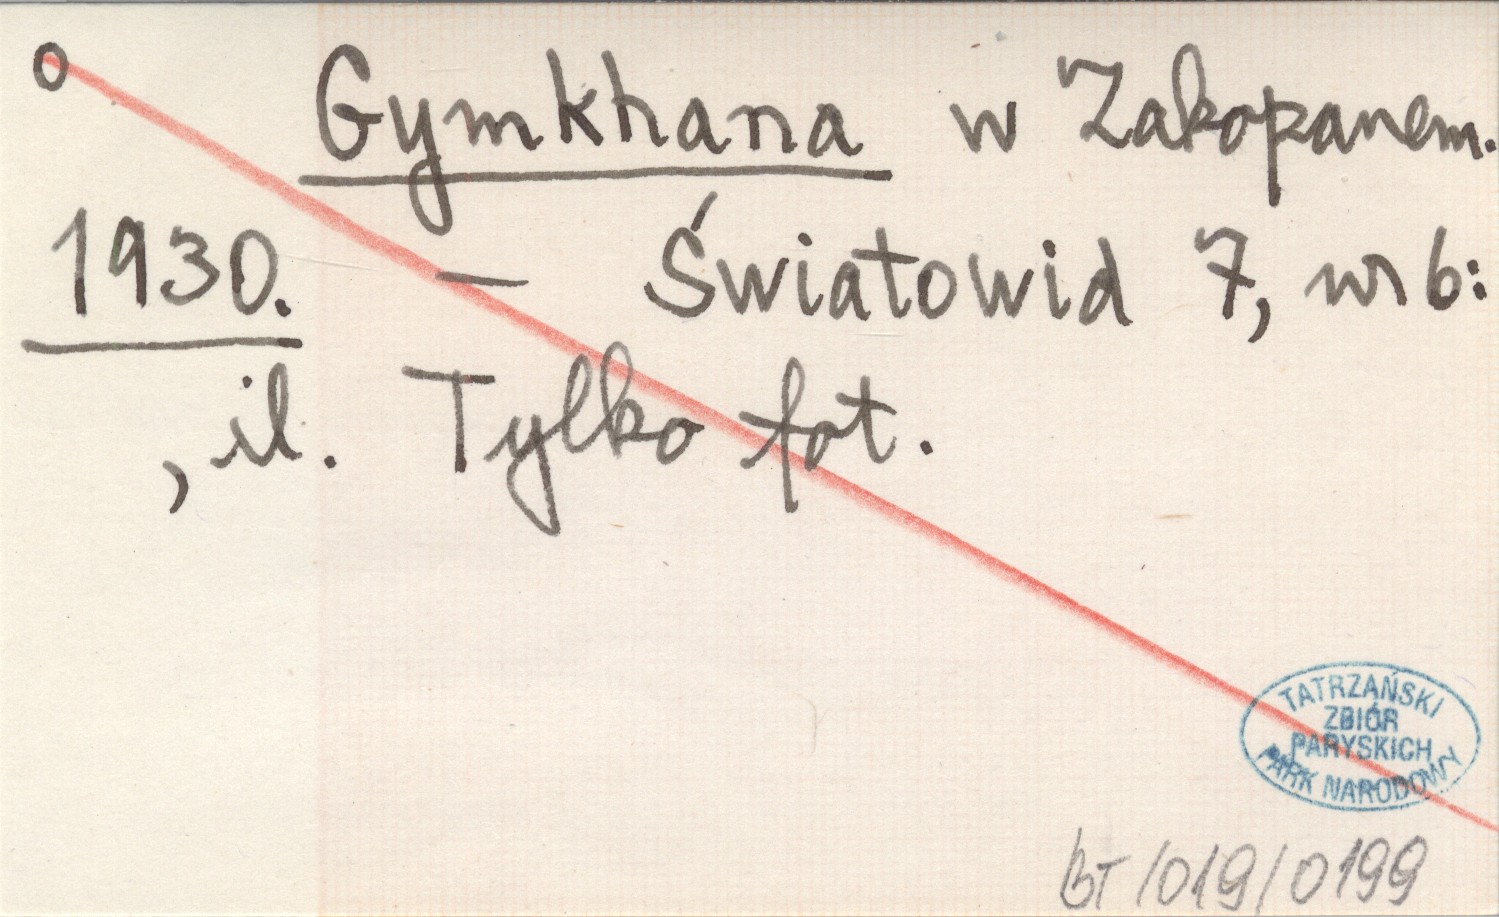 o Gymkhana w Zakopanem.
1930. — Światowid 7, nr 6:
, il. Tylko fot.
TATRZAŃSKI
ZBIÓR
PARYSKICH
PARK NARODOWY
BT/019/0199